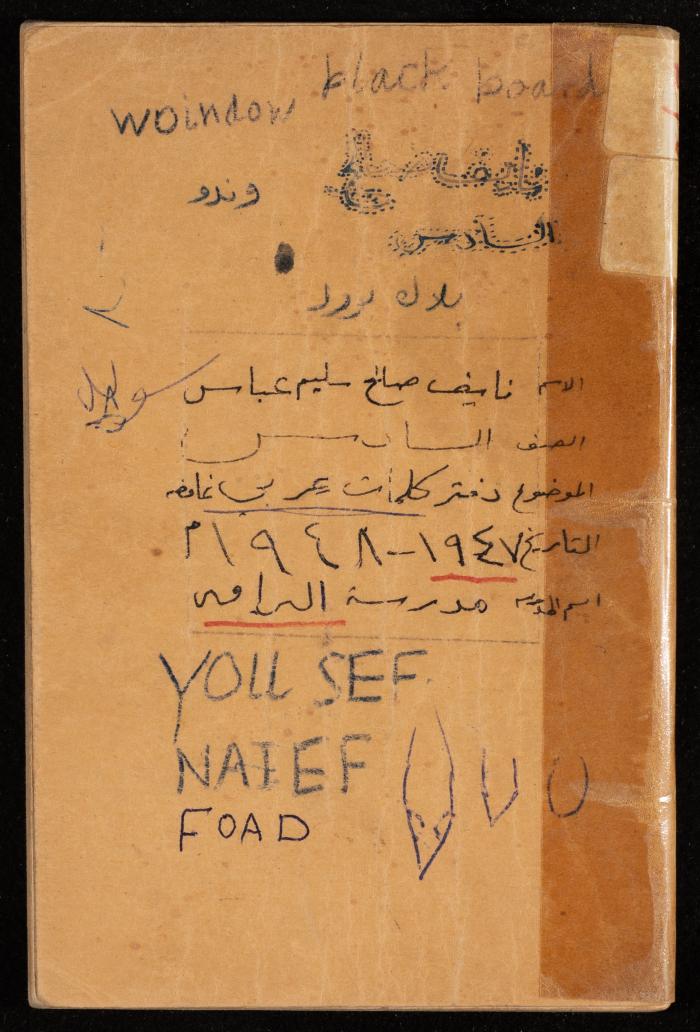 black board
woindow
نايف صالح
وندو
السادس
بلاك بورد
الاسم نايف صالح سليم عباس
الصف السادس
الموضوع دفتر كلمات عربي غامضه
التاريخ ١٩٤٧-١٩٤٨م
اسم المدرسه مدرسة الرامه
YOUSEF
NAIEF
FOAD